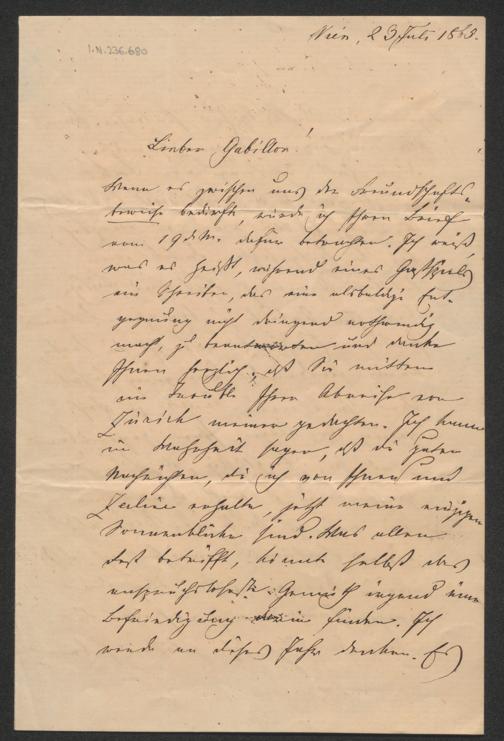 I.N. 236.680
Wien, 23 Juli 1868.
Lieber Gabillon!
Wenn es zwischen uns der Freundschafts-
beweise bedürfte, würde ich Ihren Brief
vom 19 d. M. dafür betrachten. Ich weiß,
was es heißt, während eines Gastspiels
ein Schreiben, das eine alsbaldige Ent-
gegnung nicht dringend nothwendig
macht, zu beantworten und danke
Ihnen herzlich, daß Sie mitten
im Trouble Ihrer Abreise von
Zürich meiner gedachten. Ich kann
in Wahrheit sagen, daß die guten
Nachrichten, die ich von Ihnen und
Zerline erhalte, jetzt meine einzigen
Sonnenblicke sind. Was allen
Rest betrifft, könnte selbst das
anspruchsloseste Gemüth irgend eine
Befriedigung darin finden. Ich
werde an dieses Jahr denken. Es